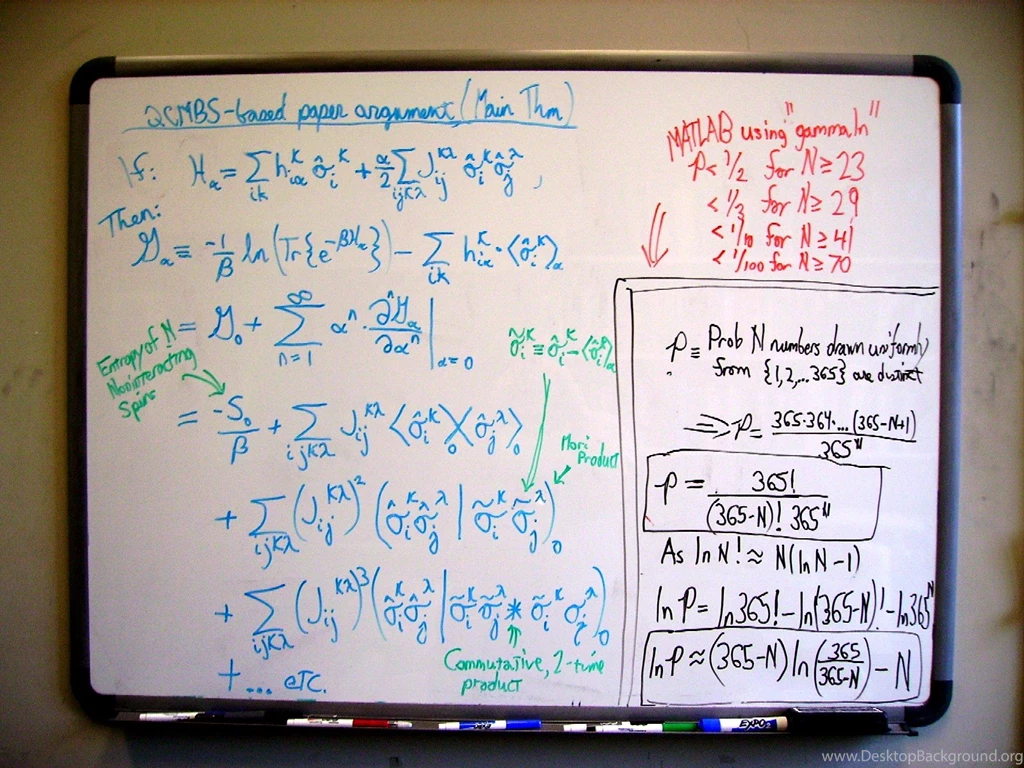 2CMBS-based paper argument (Main Thm)
If: H_α = ∑_{ik} h_{iα}^κ σ̂_i^κ + α/2 ∑_{ijκλ} J_{ij}^{κλ} σ̂_i^κ σ̂_j^λ ,
Then:
G_α ≡ -1/β ln(Tr{e^{-βH_α}}) - ∑_{ik} h_{iα}^κ · ⟨σ̂_i^κ⟩_α
= G_0 + ∑_{n=1}^{∞} α^n · ∂^n G_α / ∂α^n |_{α=0}
Entropy of N
Noninteracting
Spins
= -S_0/β + ∑_{ijκλ} J_{ij}^{κλ} ⟨σ̂_i^κ⟩_0 ⟨σ̂_j^λ⟩_0
σ̃_i^κ ≡ σ̂_i^κ - ⟨σ̂_i^κ⟩_α
Mori
Product
+ ∑_{ijκλ} (J_{ij}^{κλ})^2 (σ̂_i^κ σ̂_j^λ | σ̃_i^κ σ̃_j^λ)_0
+ ∑_{ijκλ} (J_{ij}^{κλ})^3 (σ̂_i^κ σ̂_j^λ | σ̃_i^κ σ̃_j^λ * σ̃_i^κ σ_j^λ)_0
Commutative, 2-time
product
+ ... etc.
MATLAB using "gammaln"
P < 1/2 for N ≥ 23
< 1/3 for N ≥ 29
< 1/10 for N ≥ 41
< 1/100 for N ≥ 70
P ≡ Prob N numbers drawn uniformly
from {1,2,...365} are distinct
⇒ P = 365·364·...(365-N+1) / 365^N
P = 365! / (365-N)! 365^N
As ln N! ≈ N(ln N - 1)
ln P = ln 365! - ln(365-N)! - ln 365^N
ln P ≈ (365-N) ln(365/(365-N)) - N
EXPO
www.DesktopBackground.org